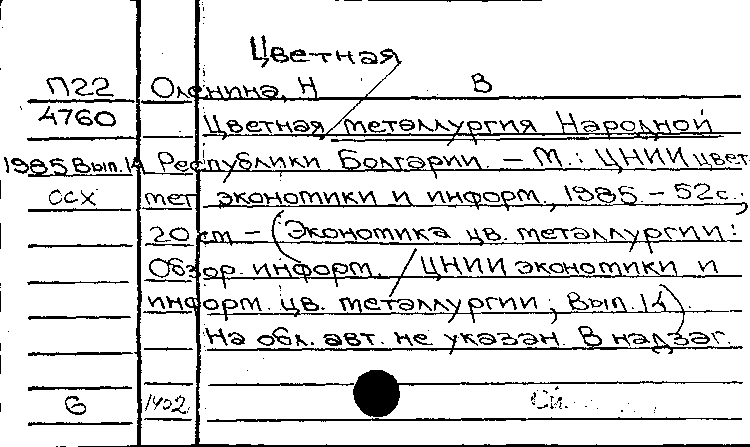 Цветная
П22 Оленина, Н В
4760 Цветная металлургия Народной
1985 Вып.14 Республики Болгарии. – М.: ЦНИИ цвет
ССХ мет экономики и информ., 1985 – 52с.;
20 см – (Экономика цв. металлургии:
Обзор. информ. / ЦНИИ экономики и
информ. цв. металлургии; Вып. 14).
На обл. авт. не указан. В надзаг.
6 1402